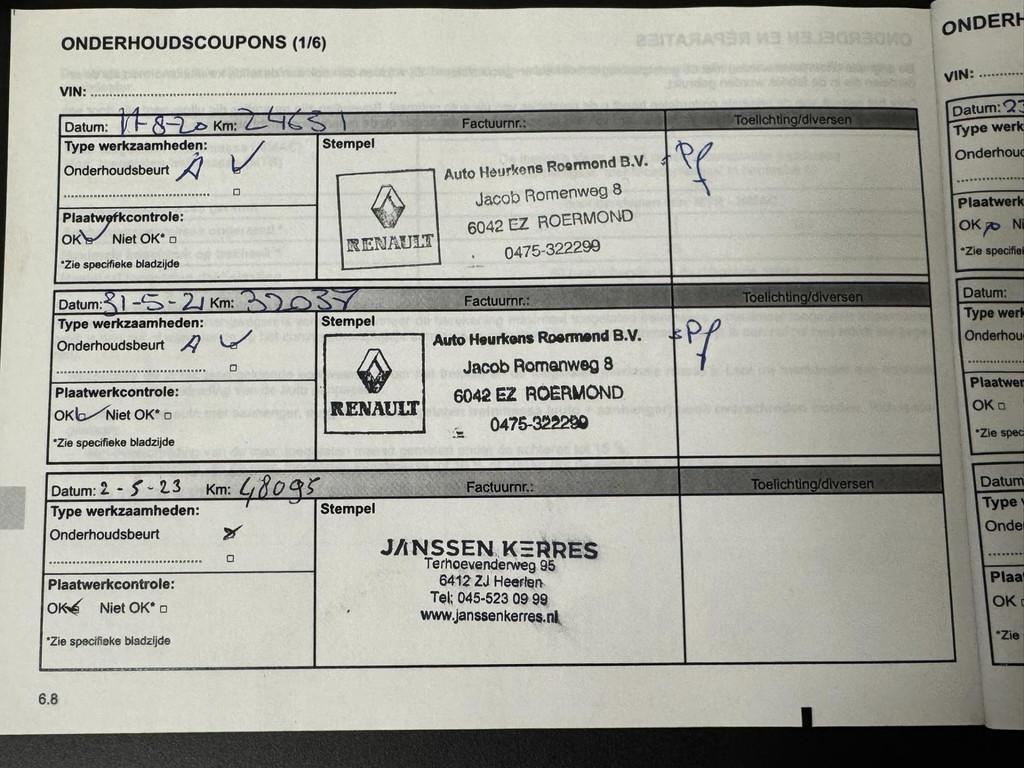 ONDERHOUDSCOUPONS (1/6)
VIN:
Datum: 11-8-20 Km: 24631 Factuurnr.: Toelichting/diversen
Type werkzaamheden:
Onderhoudsbeurt A
Plaatwerkcontrole:
OK Niet OK*
*Zie specifieke bladzijde
Stempel
RENAULT
Auto Heurkens Roermond B.V.
Jacob Romenweg 8
6042 EZ ROERMOND
0475-322299
Datum: 31-5-21 Km: 32037 Factuurnr.: Toelichting/diversen
Type werkzaamheden:
Onderhoudsbeurt A
Plaatwerkcontrole:
OK Niet OK*
*Zie specifieke bladzijde
Stempel
RENAULT
Auto Heurkens Roermond B.V.
Jacob Romenweg 8
6042 EZ ROERMOND
0475-322299
Datum: 2-5-23 Km: 48095 Factuurnr.: Toelichting/diversen
Type werkzaamheden:
Onderhoudsbeurt
Plaatwerkcontrole:
OK Niet OK*
*Zie specifieke bladzijde
Stempel
JANSSEN KERRES
Terhoevenderweg 95
6412 ZJ Heerlen
Tel: 045-523 09 99
www.janssenkerres.nl
6.8
VIN:
Datum:
OK
Datum:
OK
OK
*Zie